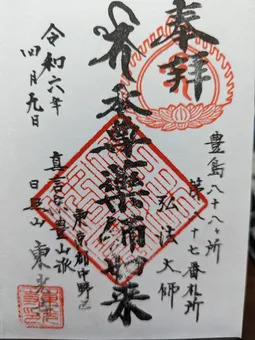 奉拝
豊島八十八ヶ所
第八十七番札所
弘法大師
本尊薬師如来
東京都中野区
真言宗豊山派
日
山
東光
令和六年
四月九日